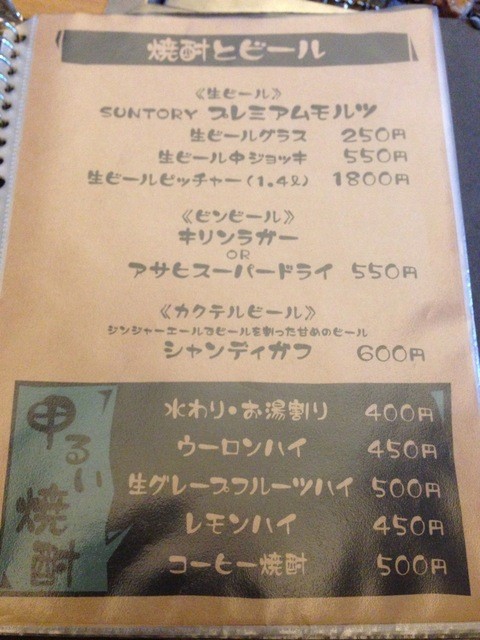 焼酎とビール
《生ビール》
SUNTORY プレミアムモルツ
生ビールグラス 250円
生ビール中ジョッキ 550円
生ビールピッチャー(1.4ℓ) 1800円
《ビンビール》
キリンラガー
OR
アサヒスーパードライ 550円
《カクテルビール》
ジンジャーエールでビールを割った甘めのビール
シャンディガフ 600円
甲るい焼酎
水わり・お湯割り 400円
ウーロンハイ 450円
生グレープフルーツハイ 500円
レモンハイ 450円
コーヒー焼酎 500円